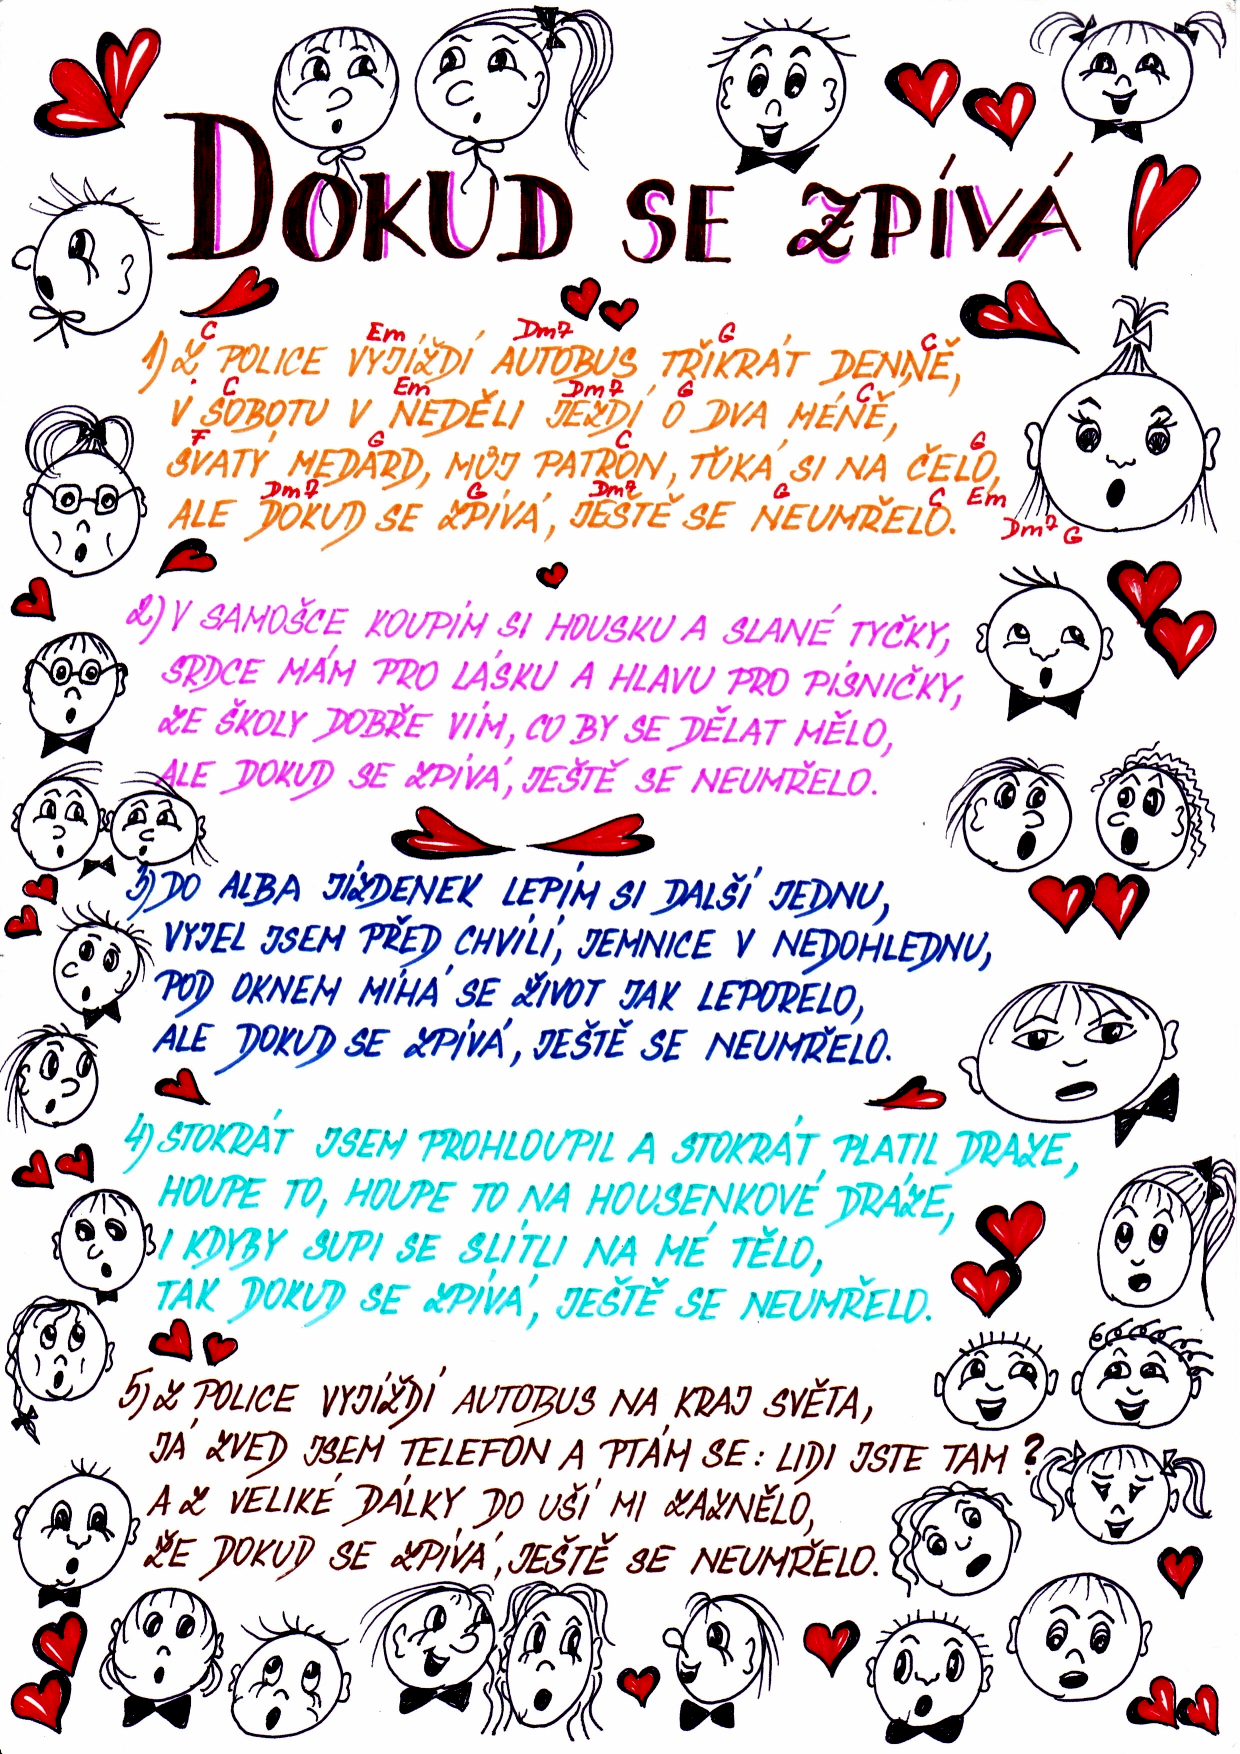 DOKUD SE ZPÍVÁ
C Em Dm7 G C
1) Z POLICE VYJÍŽDÍ AUTOBUS TŘIKRÁT DENNĚ,
C Em Dm7 G C
V SOBOTU V NEDĚLI JEZDÍ O DVA MÉNĚ,
F G C G
SVATÝ MEDARD, MŮJ PATRON, ŤUKÁ SI NA ČELO,
Dm7 G Dm7 G C Em Dm7 G
ALE DOKUD SE ZPÍVÁ, JEŠTĚ SE NEUMŘELO.
2) V SAMOŠCE KOUPÍM SI HOUSKU A SLANÉ TYČKY,
SRDCE MÁM PRO LÁSKU A HLAVU PRO PÍSNIČKY,
ZE ŠKOLY DOBŘE VÍM, CO BY SE DĚLAT MĚLO,
ALE DOKUD SE ZPÍVÁ, JEŠTĚ SE NEUMŘELO.
3) DO ALBA JÍZDENEK LEPÍM SI DALŠÍ JEDNU,
VYJEL JSEM PŘED CHVÍLÍ, JEMNICE V NEDOHLEDNU,
POD OKNEM MÍHÁ SE ŽIVOT JAK LEPORELO,
ALE DOKUD SE ZPÍVÁ, JEŠTĚ SE NEUMŘELO.
4) STOKRÁT JSEM PROHLOUPIL A STOKRÁT PLATIL DRAZE,
HOUPE TO, HOUPE TO NA HOUSENKOVÉ DRÁZE,
I KDYBY SUPI SE SLÍTLI NA MÉ TĚLO,
TAK DOKUD SE ZPÍVÁ, JEŠTĚ SE NEUMŘELO.
5) Z POLICE VYJÍŽDÍ AUTOBUS NA KRAJ SVĚTA,
JÁ ZVED JSEM TELEFON A PTÁM SE: LIDI JSTE TAM?
A Z VELIKÉ DÁLKY DO UŠÍ MI ZAZNĚLO,
ŽE DOKUD SE ZPÍVÁ, JEŠTĚ SE NEUMŘELO.